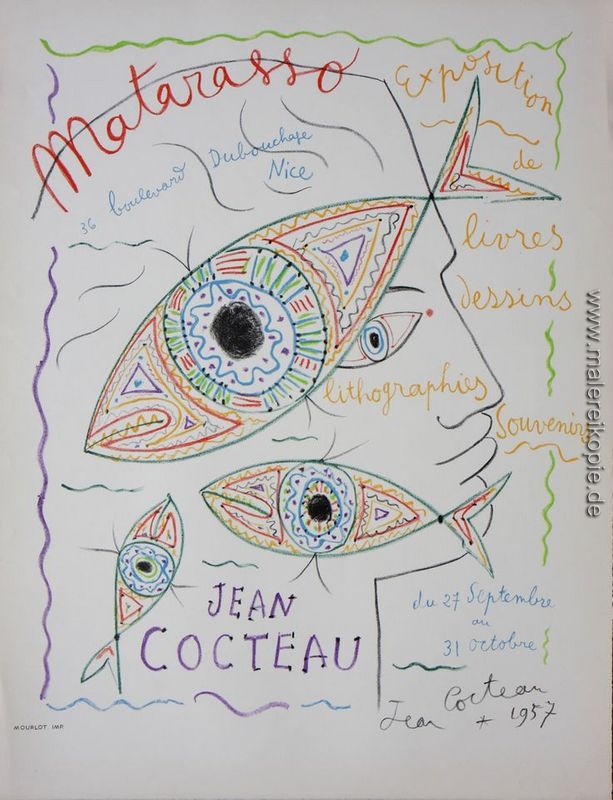 Matarasso
36 boulevard Dubouchage
Nice
Exposition
de
livres
dessins
lithographies
Souvenirs
JEAN
COCTEAU
du 27 Septembre
au
31 octobre
Jean Cocteau
* 1957
MOURLOT IMP.
www.malereikopie.de